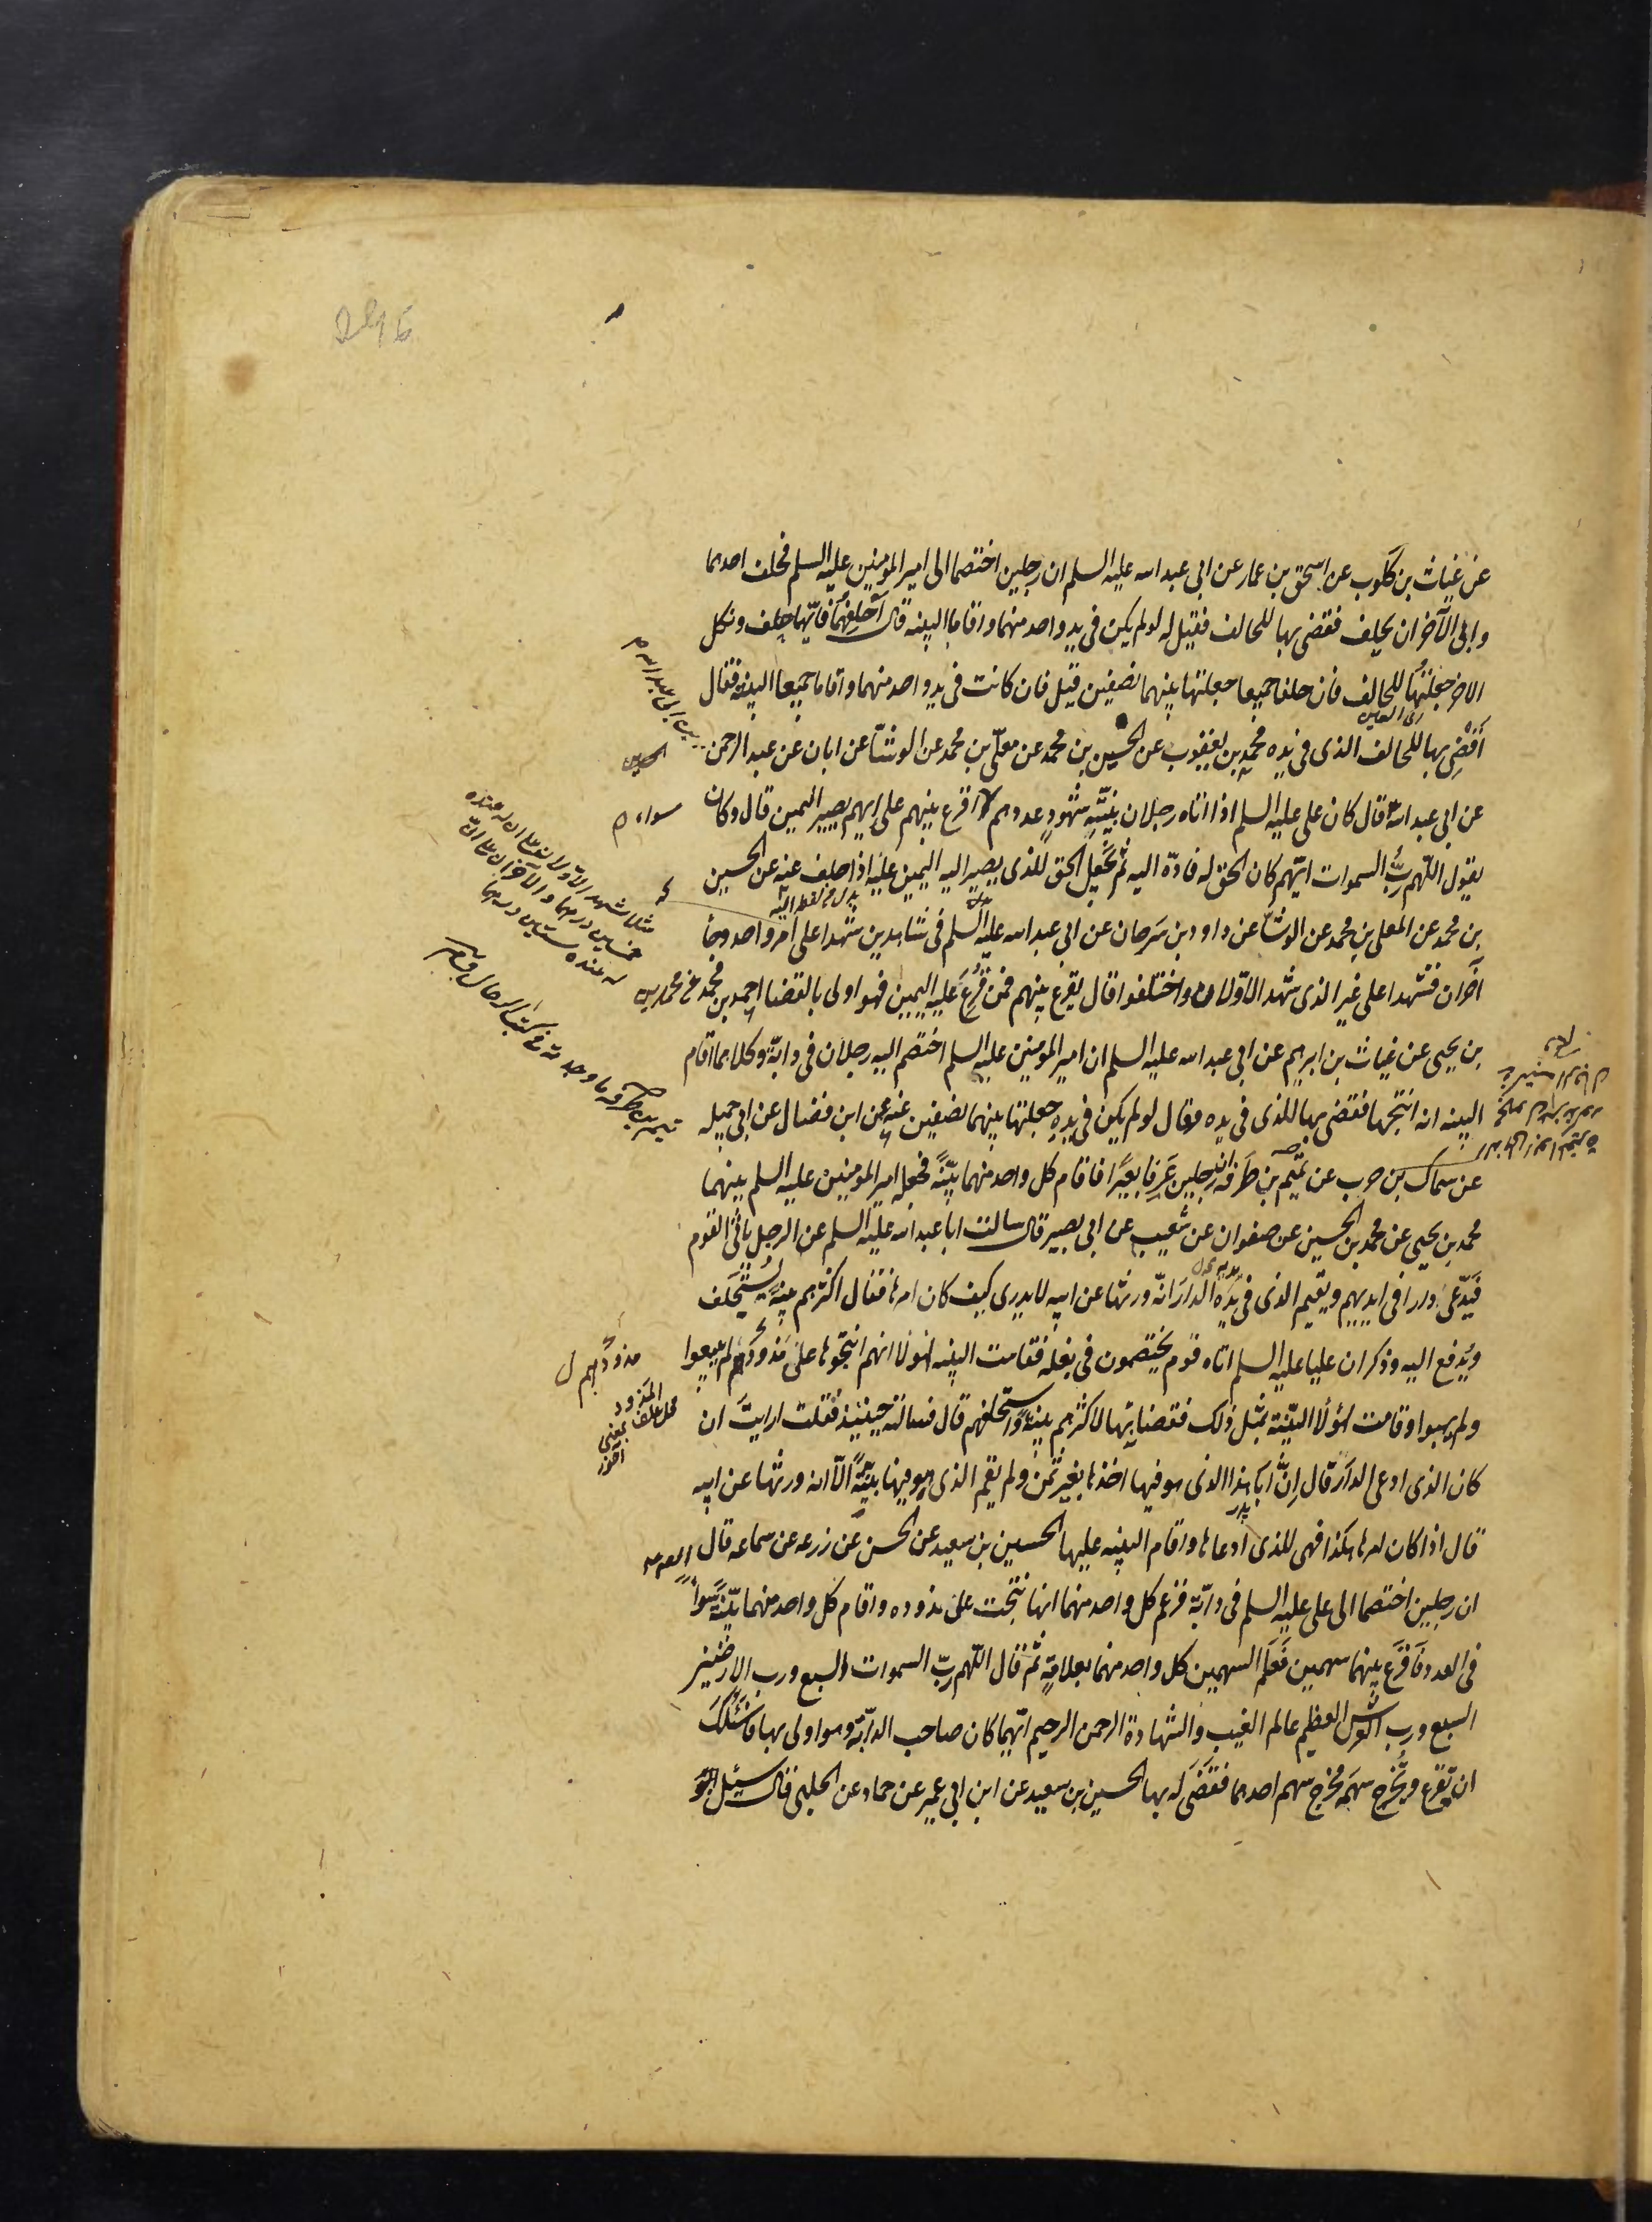 عن غياث بن كلوب عن اسحق بن عمار عن ابى عبد الله عليه السلم ان رجلين اختصما الى امير المؤمنين عليه السلم فحلف احدهما
وابى الآخر ان يحلف فقضى بها للحالف فقيل له لو لم يكن فى يد واحد منهما واقاما البينه قال اَحلِفهُما فايّهما حلف ونكل
الاخر جعلتها للحالف فان حلفا جميعا جعلتها بينهما نصفين قيل فان كانت فى يد واحد منهما واقاما جميعا البينه فقال
اَقضِى بها للحالف الذى فى يده محمد بن يعقوب عن الحسين بن محمد عن معلّى بن محمد عن الوشّا عن ابان عن عبد الرحمن
عن ابى عبد الله قال كان على عليه السلم اذا اتاه رجلان ببَيّنةٍ شهودٍ عددهم اقرع بينهم على ايهم يصير اليمين قال وكان
سواء
يقول اللهم ربُّ السموات ايّهم كان الحق له فادّه اليه ثم يَجعل الحق للذى يصير اليه اليمين عليه اذا حلف عنه عن الحسين
بدل من لفظ اليه
بن محمد عن المعلى بن محمد عن الوشّا عن داود بن سَرحان عن ابى عبد الله عليه السلم فى شاهدين شهدا على امر واحد وجأ
آخران فشهدا على غير الذى شهد الاوّلان واختلفوا قال يقرع بينهم فمن قُرِعَ عليه اليمين فهو اولى بالقضا احمد بن محمد عن محمد
بن يحيى عن غياث بن ابرهيم عن ابى عبد الله عليه السلم ان امير المؤمنين عليه السلم اختصم اليه رجلان فى دابّة وكلاهما اقام
البينه انه انتجها فقضى بها للذى فى يده وقال لو لم يكن فى يدِهِ جعلتها بينهما نصفين عنه عن ابن فضال عن ابى جميله
عن سماك بن حرب عن تميم بن طرفه ان رجلين عَرَفا بعيرًا فاقام كل واحد منهما بيّنةً فجعله امير المؤمنين عليه السلم بينهما
محمد بن يحيى عن محمد بن الحسين عن صفوان عن شعيب عن ابى بصير قال سالت ابا عبد الله عليه السلم عن الرجل يأتى القوم
فَيَدّعى دارا فى ايديهم ويقيم الذى فى يَدِه الدارَ انّه ورثها عن ابيه لا يدرى كيف كان امرها فقال اكثرهم بينةً يُستَحلَف
ويُدفع اليه وذكر ان عليا عليه السلم اتاه قوم يختصمون فى بغله فقامت البينه لهؤلا انهم انتجوها على مَذوَدِهِم لم يبيعوا
مذودهم ل
ولم يهبوا وقامت لهؤلا البيّنة بمثل ذلك فقضا بها لاكثرهم بينةً واستحلفهم قال فسالته حينئذ فقلت ارايتَ ان
المَذود محل علف بمعنى آخور
كان الذى ادعى الدارَ قال اِنَّ اَبا هذا الذى هو فيها اخذها بغير ثمن ولم يقم الذى هو فيها بيّنةً الّا انه ورثها عن ابيه
قال اذا كان امرها هكذا فهى للذى ادعاها واقام البينه عليها الحسين بن سعيد عن الحسن عن زرعه عن سماعه قال
ان رجلين اختصما الى على عليه السلم فى دابّة فزعم كل واحد منهما انها نتجت على مذوده واقام كل واحد منهما بيّنةً سَواءً
فى العدد فاَقرَع بينهما سهمين فعَلّم السهمين كل واحد منهما بعلامةٍ ثم قال اللهم ربّ السموات السبع ورب الارضين
السبع ورب العرش العظيم عالم الغيب والشهادة الرحمن الرحيم ايّهما كان صاحب الدابّة وهو اولى بها فاَسئلُكَ
ان تقرع ويُخرِج سهمَه فخرج سهم احدهما فقَضَى له بها الحسين بن سعيد عن ابن ابى عمير عن حماد عن الحلبى قال سئل ابو